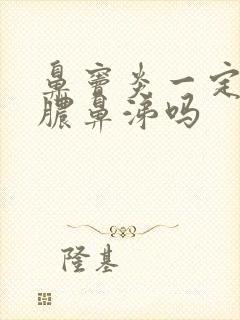 鼻窦炎一定
脓鼻涕吗
隆基